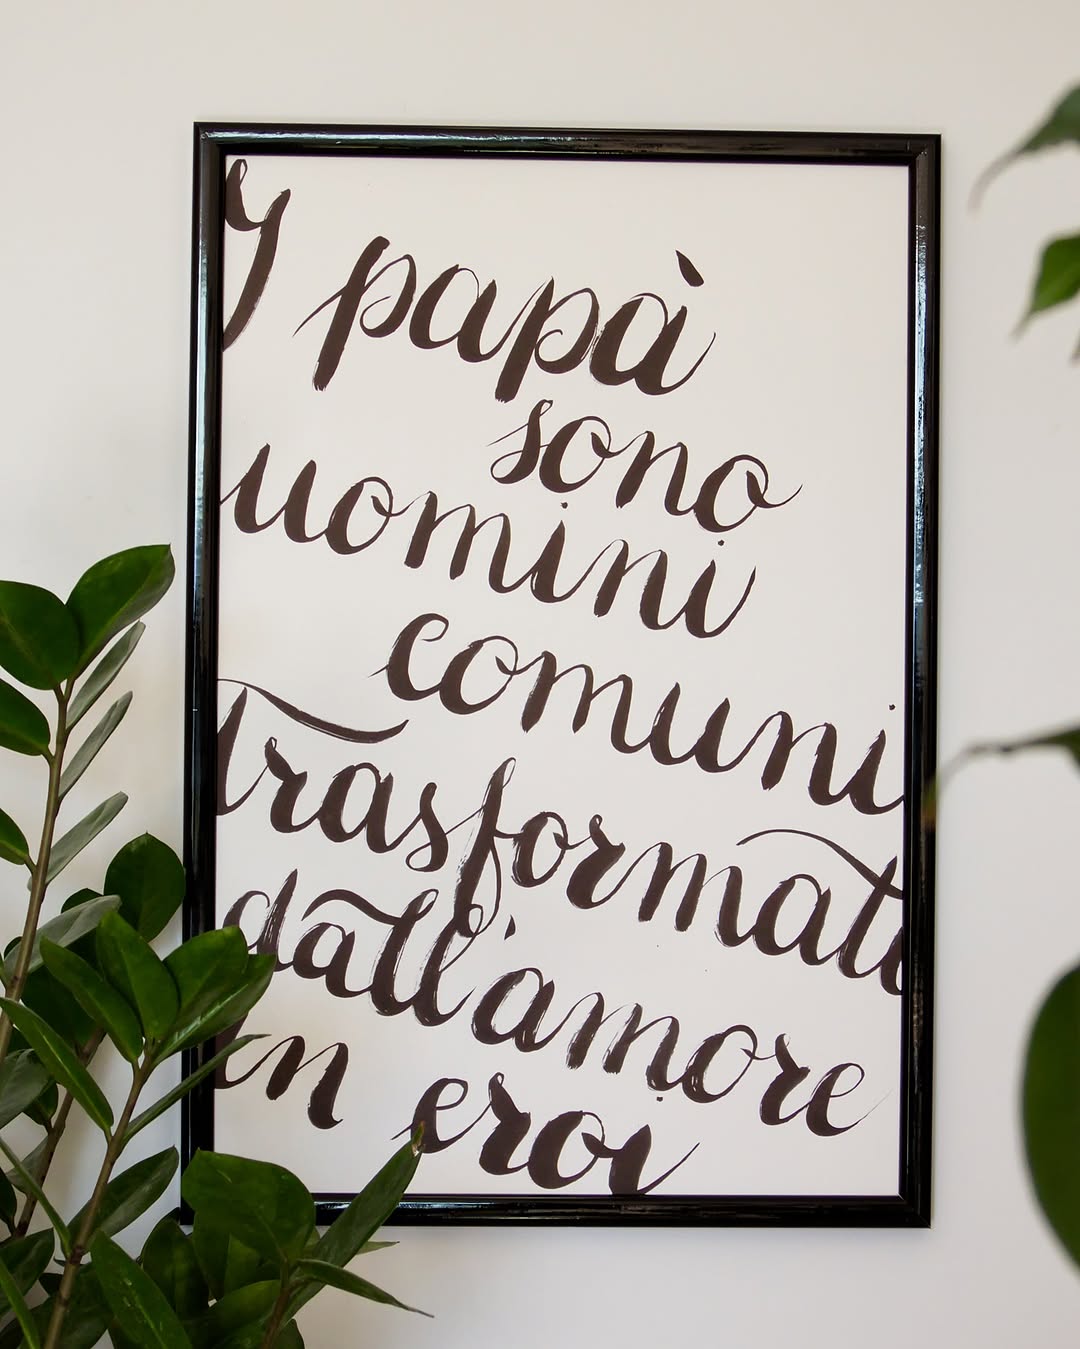 I papà
sono
uomini
comuni
trasformati
dall'amore
in eroi